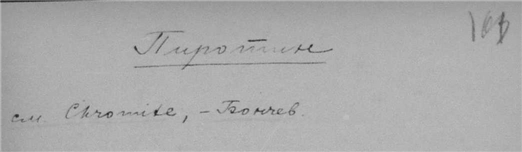 Пиротин
см. Chromite, – Бончев.